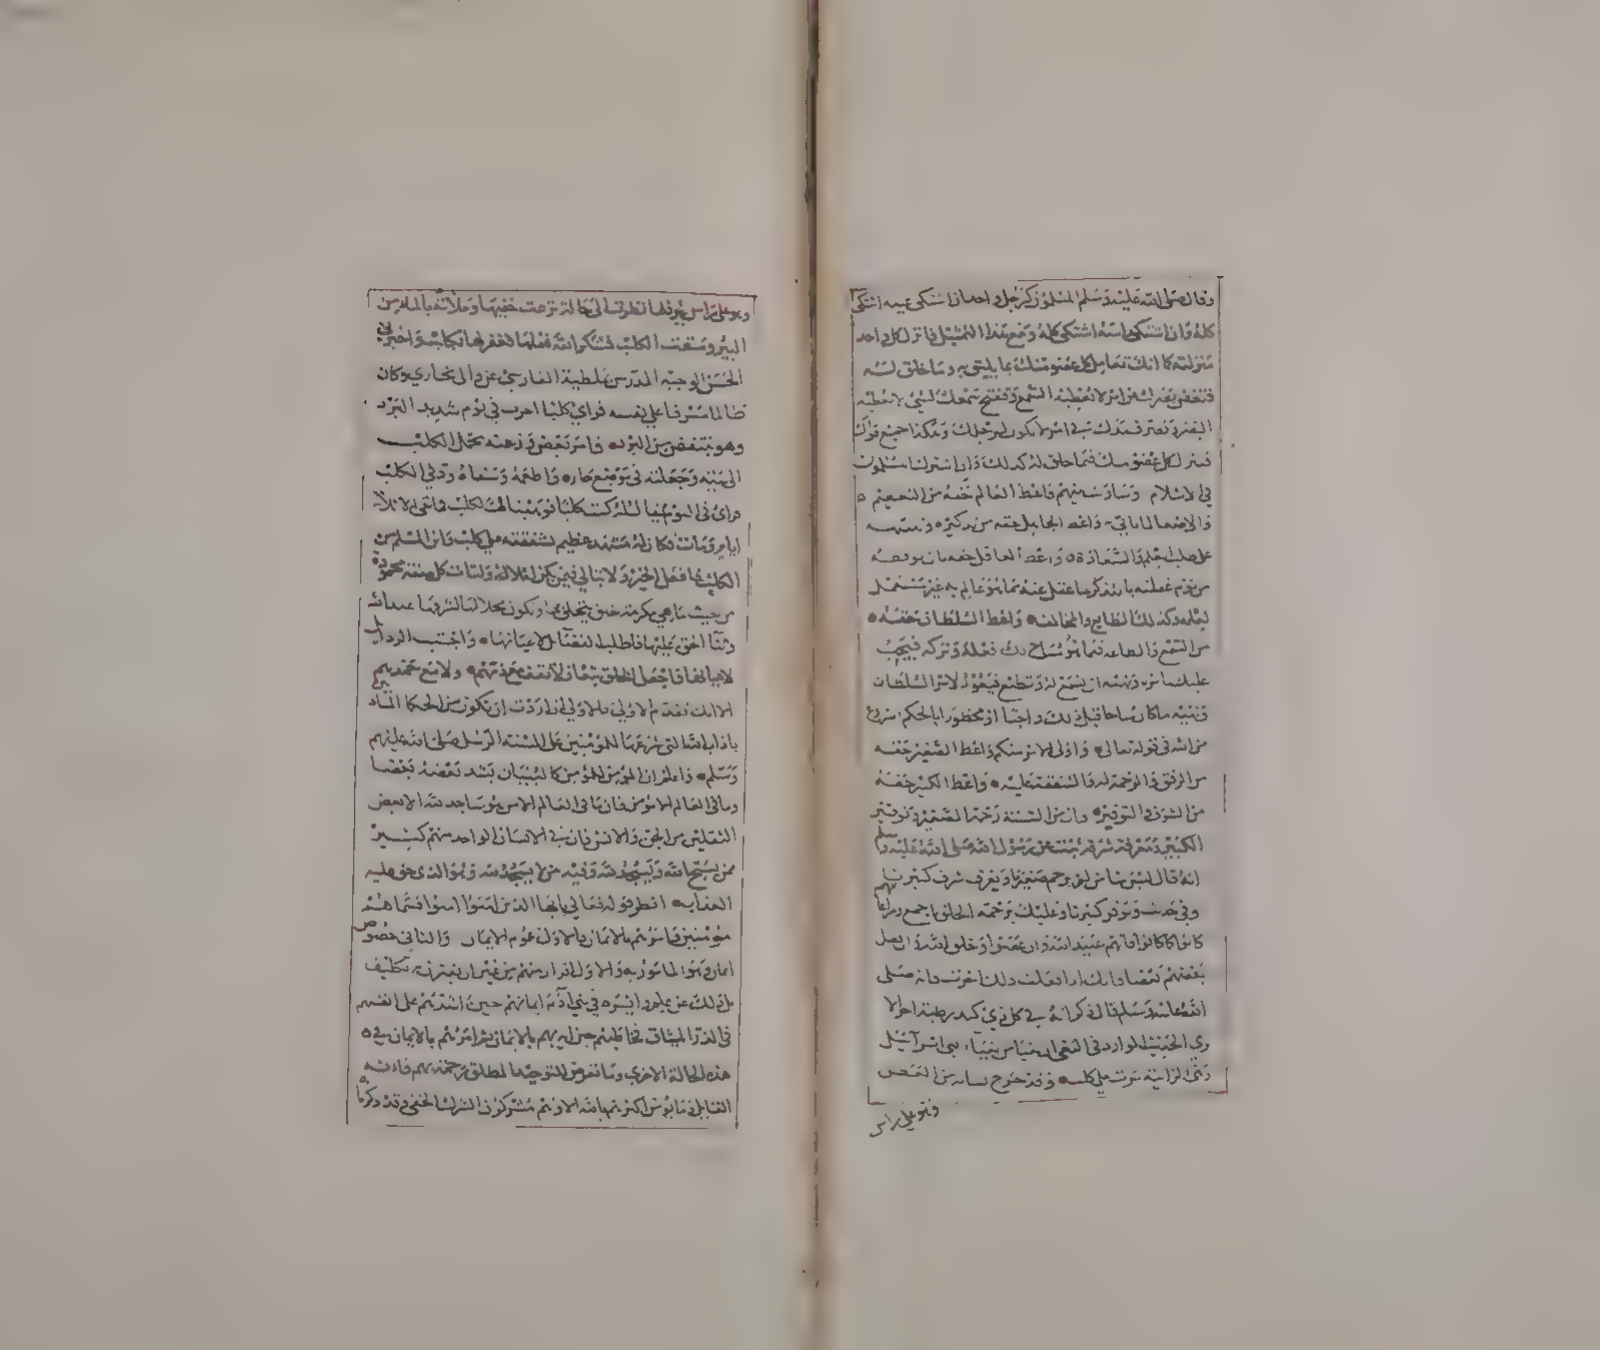 وقال صلى الله عليه وسلم المسلمون كرجل واحد ان اشتكى عينه اشتكى
كله وان اشتكى راسه اشتكى كله ومع هذا التمثيل فانزل كل واحد
منزلته كما انك تعامل كل عضو منك بما يليق به وما خلق له
فتغض بصرك عن امر لا تعطيه السمع وتفتح سمعك لشئ لا تعطيه
البصر وتصرف يدك في امر لا يكون لرجلك وهكذا جميع قواك
فنزل كل عضو منك فيما خلق له كذلك وان اشترك المسلمون
في الاسلام وساويت بينهم فاعط العالم حقه من التعظيم
والاصغا لما ياتي به واعط الجاهل حقه من تذكيره وتنبيهه
على طلب العلم والسعادة واعط الغافل حقه بان توقظه
من نوم غفلته بالتذكر لما غفل عنه مما هو عالم به غير مستعمل
لعلمه وكذلك الطايع والمخالف واعط السلطان حقه
من السمع والطاعة فيما هو مباح لك فعله وتركه فيجب
عليك بامره ونهيه ان تسمع له وتطيع فيعود لامر السلطان
ونهيه ما كان مباحا قبل ذلك واجبا او محظورا بالحكم المشروع
من الله في قوله تعالى واولى الامر منكم واعط الصغير حقه
من الرفق والرحمة له والشفقة عليه واعط الكبير حقه
من الشرف والتوقير وان من السنة رحمة الصغير وتوقير
الكبير ومعرفة شرفه ثبت عن رسول الله صلى الله عليه وسلم
انه قال ليس منا من لم يرحم صغيرنا ويعرف شرف كبيرنا
وفي حديث ويوقر كبيرنا وعليك برحمة الخلق اجمع ومراعاتهم
كانوا ما كانوا فانهم عبيد الله وان عصوا وخلق الله وان فضل
بعضهم بعضا فانك اذا فعلت ذلك اجرت فانه صلى
الله عليه وسلم قال ذكر انه في كل ذي كبد رطبة اجر الا
ترى الحديث الوارد في البغي ان بغيا من بغايا بني اسرائيل
وهي الزانية مرت على كلب وقد خرج لسانه من العطش
وهو على راس
وهو على راس بير فلما نظرت الى حالة نزعت خفها وملاته بالماء من
البير وسقت الكلب فشكر الله فعلها فغفر لها بكلب واخبرني
الحسن الوجيه المدرس بملطية الفارسي عن والى بخارى وكان
ظالما مسرفا على نفسه فراي كلبا اجرب في يوم شديد البرد
وهو ينتفض من البرد فامر بعض وزعته بحمل الكلب
الى بيته وجعلته في موضع حار واطعمه وسقاه ودفي الكلب
فراى في النوم كنت كلبا فوهبناك لكلب فما بقى الا ثلاثة
ايام ومات فكان له مشهد عظيم لشفقته على كلب واين المسلم من
الكلب فافعل الخير ولا تبالي فيمن يكن له ولتات كل صفة محمودة
من حيث ما هي مكرمة خلق بتحلى بها وتكون محلا لها لشرفها عند الله
وثنا الحق عليها فاطلب الفضايل لاعيانها واجتنب الرذايل
لاعيانها واجعل الخلق تبعا ولا تقف مع ذمهم ولا مع حمدهم
الا انك تقدم الاولى فالاولى ان اردت ان تكون من الحكما
باداب الله التي شرعها للمؤمنين على السنة الرسل صلى الله عليهم
وسلم واعلم ان المؤمن للمؤمن كالبنيان يشد بعضه بعضا
وما في العالم الا مؤمن فان ما في العالم الا من هو ساجد لله الا بعض
الثقلين من الجن والانس فان في الانسان الواحد منهم كثير
ممن يسبح الله ويسجد لله وفيه من لا يسجد لله وهو الذي حق عليه
العذاب انظر قوله تعالى يايها الذين امنوا امنوا فسماهم
مؤمنين فامرهم بالايمان فالاول عموم الايمان والثاني خصوص
ايمان وهو المأمور به والاول اقرار منهم من غير ان يقترن به تكليف
بل ذلك عن علم وايسره في بني آدم ايمانهم حين اشهدهم على انفسهم
في الذر الميثاق فخاطبهم بالايمان ثم امرهم بالايمان في
هذه الحالة الاخرى وما تعرض للتوحيد المطلق رحمة بهم فانه
القايل وما يؤمن اكثرهم بالله الا وهم مشركون الشرك الخفي وقد ذكرنا